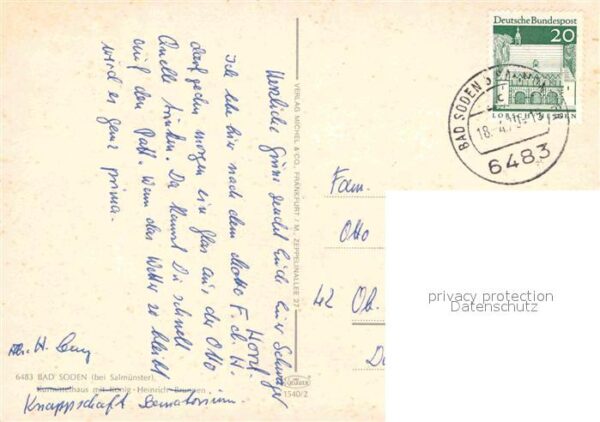 Deutsche Bundespost
20
LORSCH/HESSEN
BAD SODEN
18.-4.
6483
Herzliche Grüße sendet Euch Euer Schwager
Horst.
Ich lebe hier nach dem Motto F. d. H.
darf jeden morgen ein Glas aus der Otto
Quelle trinken. Da kannst Du schnell
auf den Pott. Wenn das Wetter so bleibt
wird es ganz prima.
VERLAG MICHEL & CO., FRANKFURT / M., ZEPPELINALLEE 27
Fam.
Otto
42 Ob.
D
privacy protection
Datenschutz
Abs. H.
6483 BAD SODEN (bei Salmünster)
Kurmittelhaus mit König-Heinrich-Brunnen
Knappschaft Sanatorium.
1540/2